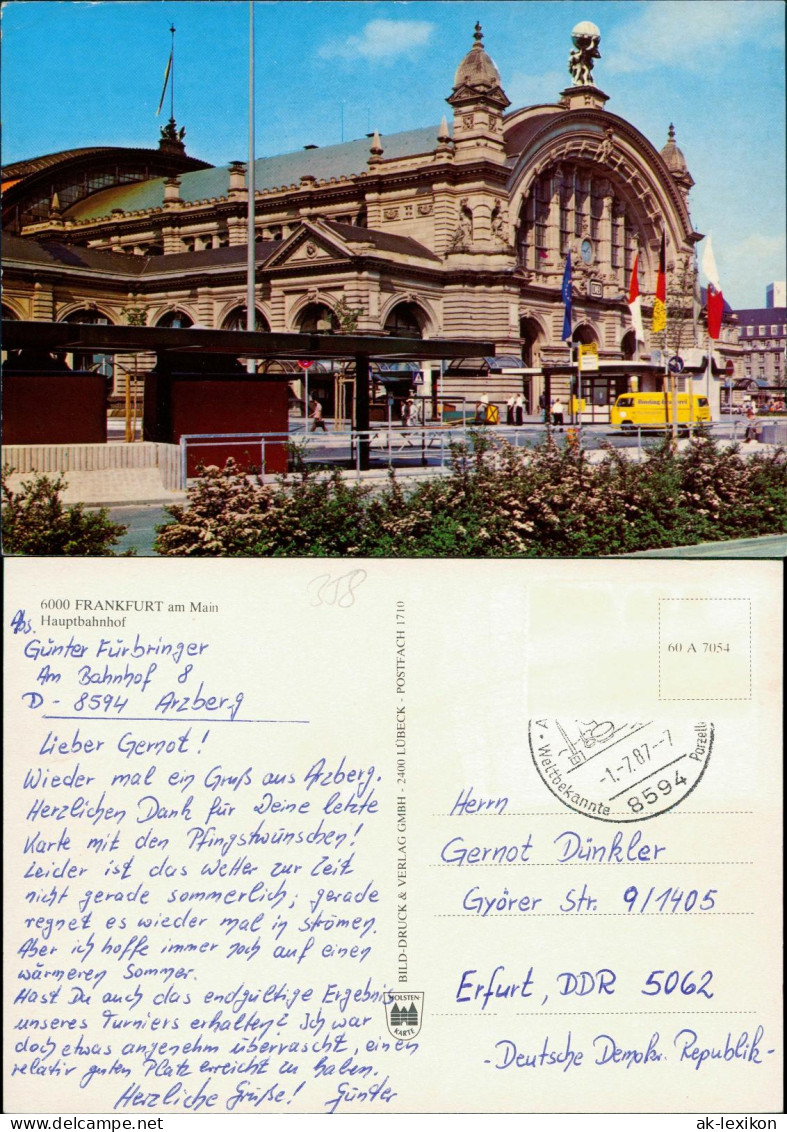 6000 FRANKFURT am Main
Hauptbahnhof
358
Abs.
Günter Fürbringer
Am Bahnhof 8
D - 8594 Arzberg
Lieber Gernot!
Wieder mal ein Gruß aus Arzberg.
Herzlichen Dank für Deine letzte
Karte mit den Pfingstwünschen!
Leider ist das Wetter zur Zeit
nicht gerade sommerlich; gerade
regnet es wieder mal in Strömen.
Aber ich hoffe immer noch auf einen
wärmeren Sommer.
Hast Du auch das endgültige Ergebnis
unseres Turniers erhalten? Ich war
doch etwas angenehm überrascht, einen
relativ guten Platz erreicht zu haben.
Herzliche Grüße! Günter
BILD-DRUCK & VERLAG GMBH - 2400 LÜBECK - POSTFACH 1710
HOLSTEN-
KARTE
60 A 7054
-1.-7.87--7
8594
Weltbekannte Porzell
Herrn
Gernot Dünkler
Györer Str. 9/1405
Erfurt, DDR 5062
-Deutsche Demokr. Republik-
www.delcampe.net
ak-lexikon